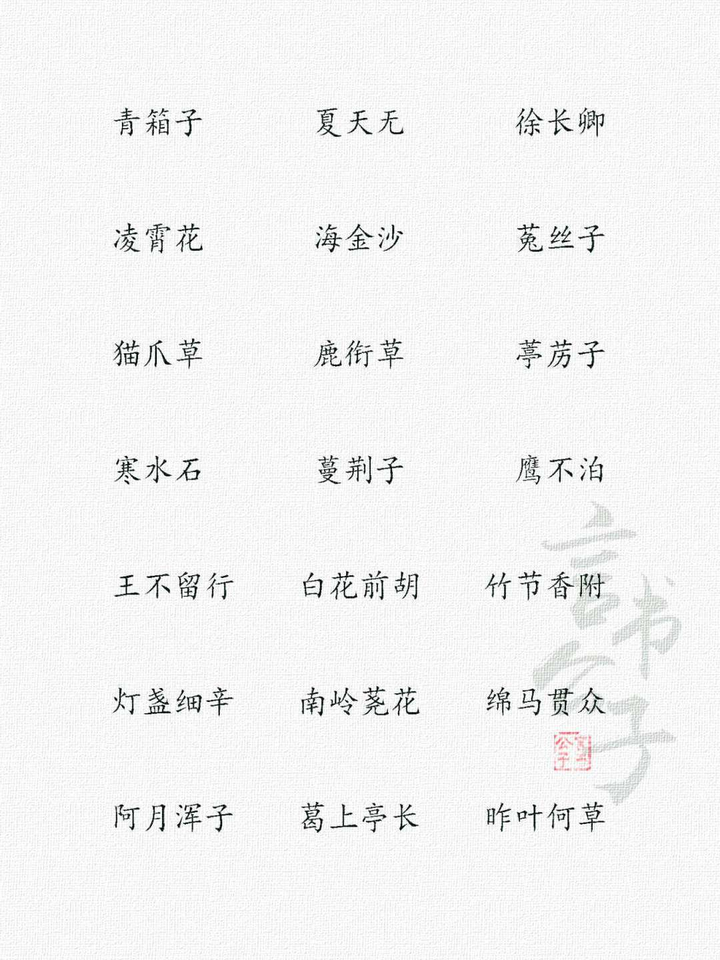 青箱子 夏天无 徐长卿
凌霄花 海金沙 菟丝子
猫爪草 鹿衔草 葶苈子
寒水石 蔓荆子 鹰不泊
王不留行 白花前胡 竹节香附
灯盏细辛 南岭荛花 绵马贯众
阿月浑子 葛上亭长 昨叶何草
言书公子
言书公子